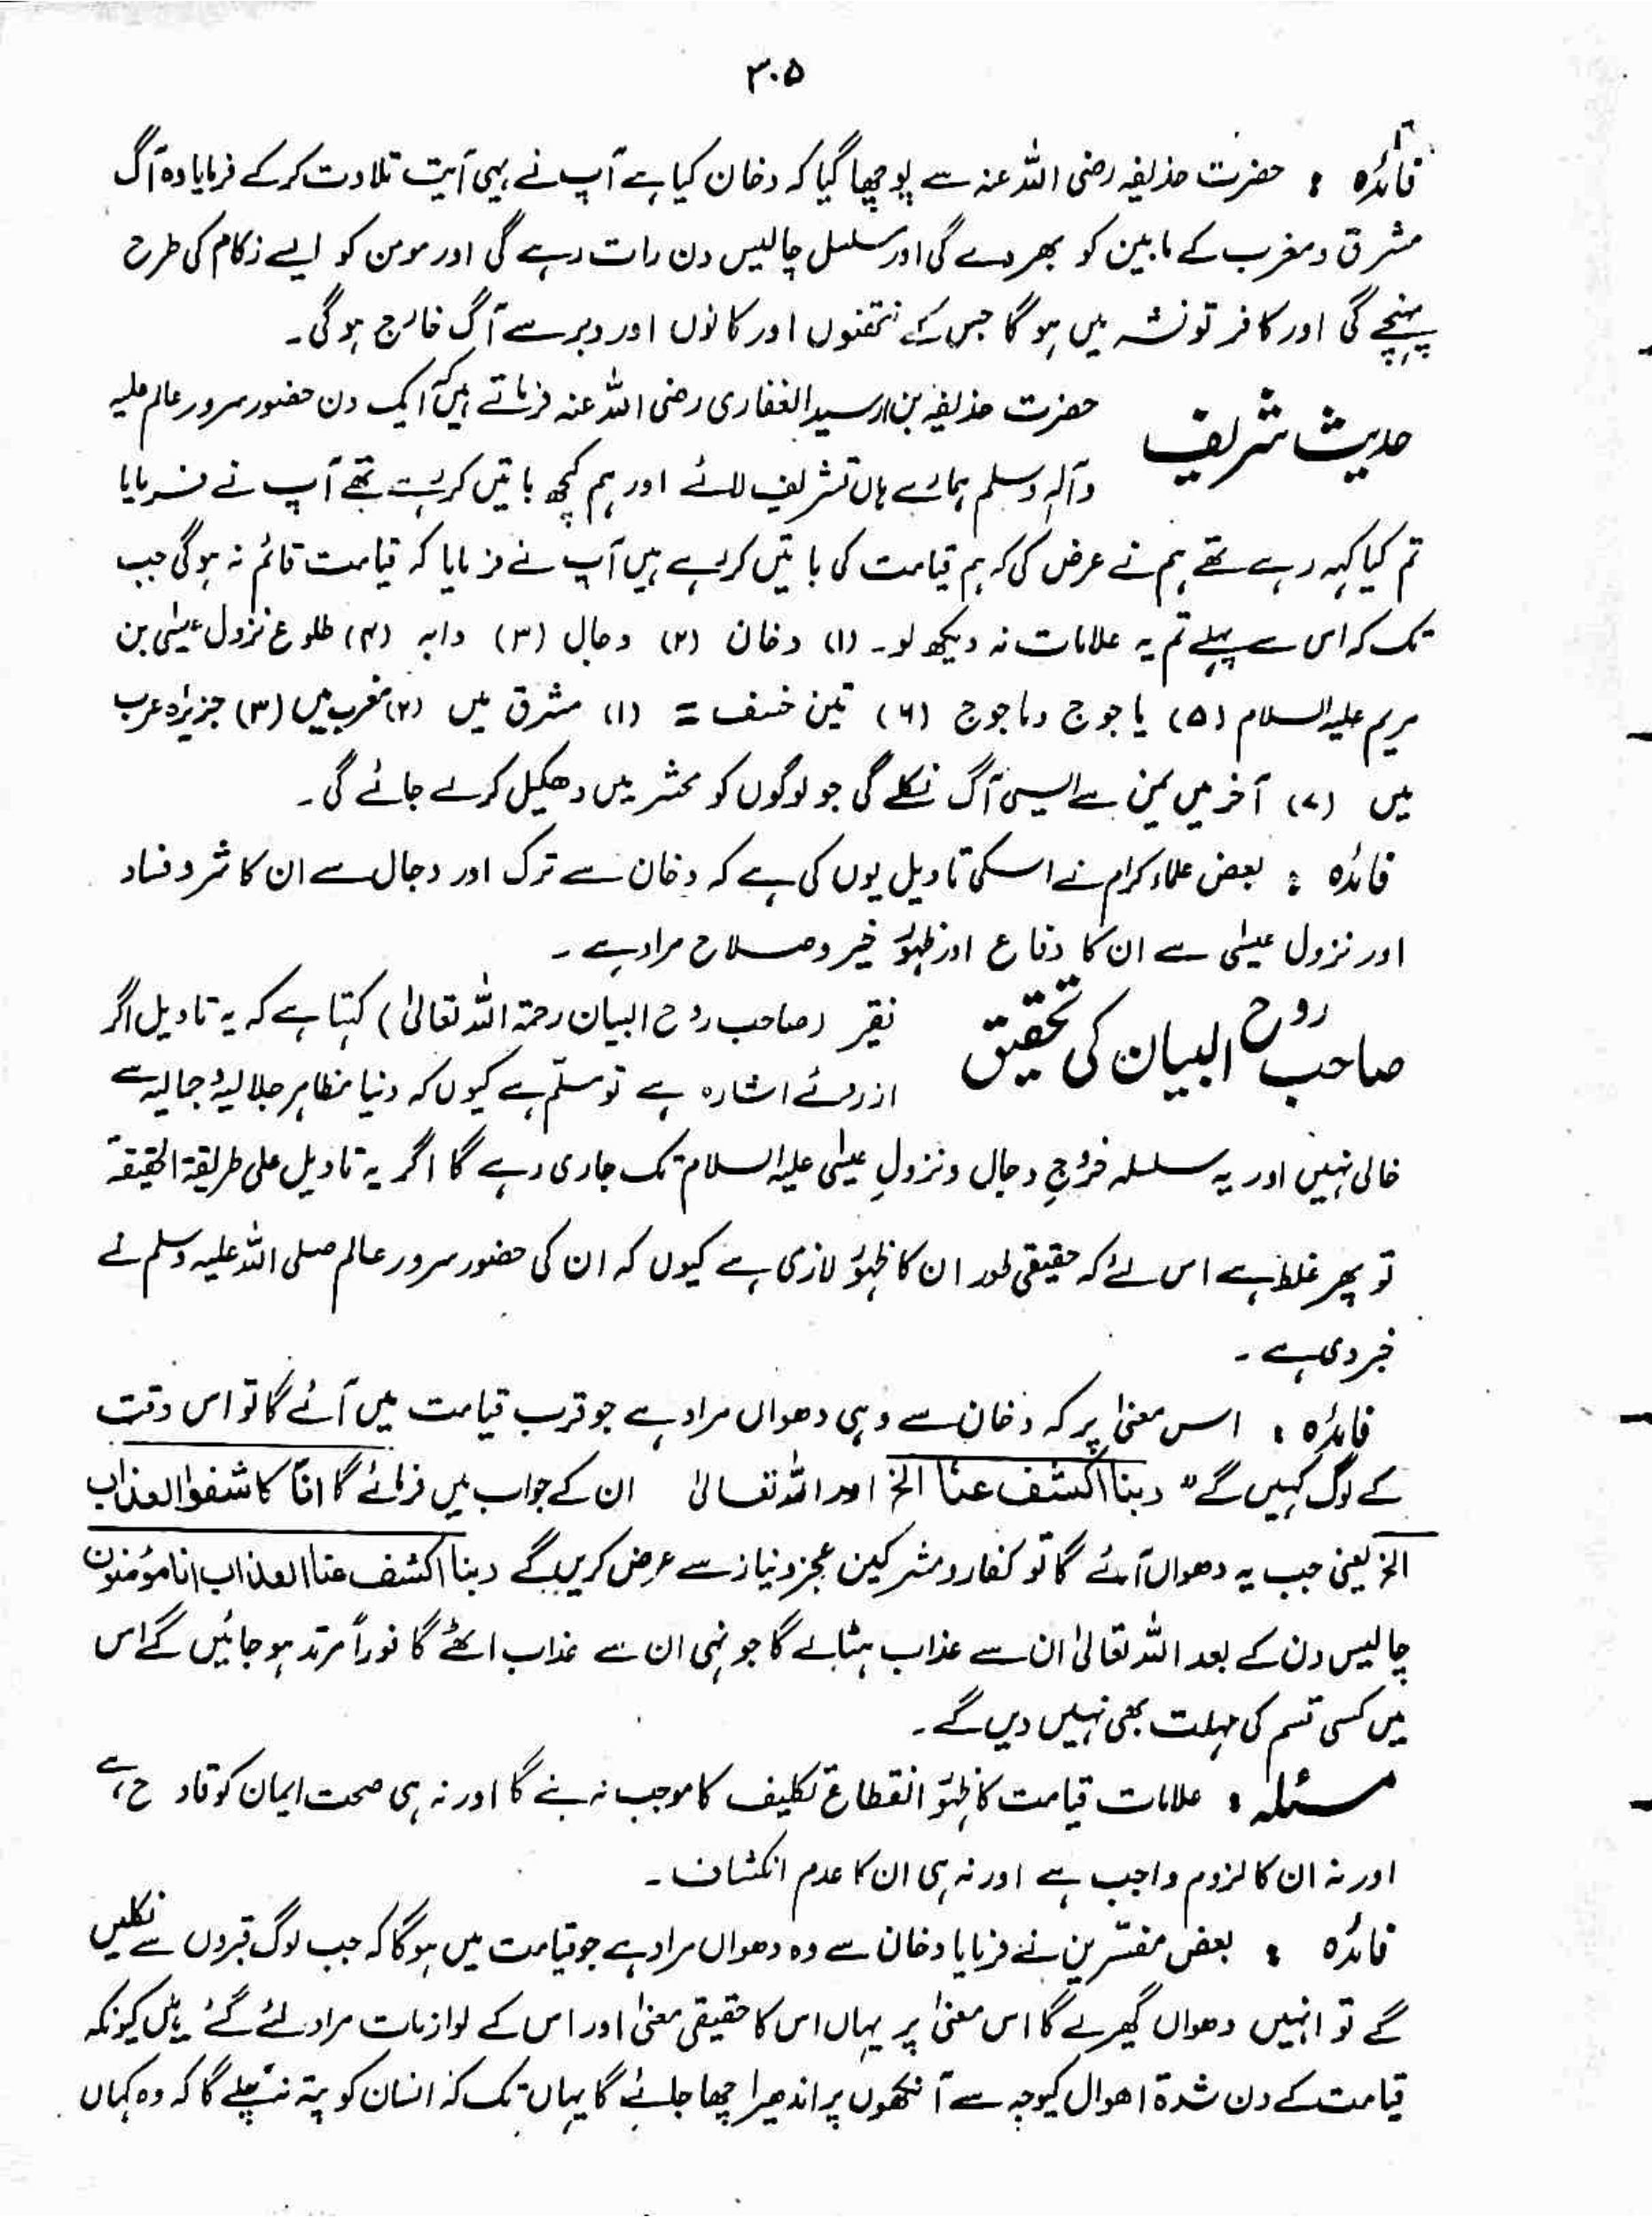 ۳۰۵
فائدہ : حضرت حذیفہ رضی اللہ عنہ سے پوچھا گیا کہ دخان کیا ہے آپ نے یہی آیت تلاوت کرکے فرمایا وہ آگ
مشرق و مغرب کے مابین کو بھر دے گی اور مسلسل چالیس دن رات رہے گی اور مومن کو ایسے زکام کی طرح
پہنچے گی اور کافر تو نشہ میں ہو گا جس کے نتھنوں اور کانوں اور دبر سے آگ خارج ہو گی۔
حدیث شریف
حضرت حذیفہ بن اسید الغفاری رضی اللہ عنہ فرماتے ہیں کہ ایک دن حضور سرور عالم علیہ
وآلہ وسلم ہمارے ہاں تشریف لائے اور ہم کچھ باتیں کر رہے تھے آپ نے فرمایا
تم کیا کہہ رہے تھے ہم نے عرض کی کہ ہم قیامت کی باتیں کر رہے ہیں آپ نے فرمایا کہ قیامت قائم نہ ہو گی جب
تک کہ اس سے پہلے تم یہ علامات نہ دیکھ لو۔ (۱) دخان (۲) دجال (۳) دابہ (۴) طلوع نزول عیسٰی بن
مریم علیہ السلام (۵) یاجوج وماجوج (۶) تین خسف = (۱) مشرق میں (۲) مغرب میں (۳) جزیرہ عرب
میں (۷) آخر میں یمن سے ایسی آگ نکلے گی جو لوگوں کو محشر میں دھکیل کر لے جائے گی۔
فائدہ : بعض علماء کرام نے اسکی تاویل یوں کی ہے کہ دخان سے ترک اور دجال سے ان کا شر و فساد
اور نزول عیسٰی سے ان کا دفاع اور ظہور خیر و صلاح مراد ہے۔
صاحب روح البیان کی تحقیق
فقیر (صاحب روح البیان رحمۃ اللہ تعالیٰ) کہتا ہے کہ یہ تاویل اگر
ازروئے اشارہ ہے تو مسلّم ہے کیوں کہ دنیا مظاہر جلالیہ و جمالیہ سے
خالی نہیں اور یہ سلسلہ خروجِ دجال و نزولِ عیسٰی علیہ السلام تک جاری رہے گا اگر یہ تاویل علی طریقۃ الحقیقۃ
تو پھر غلط ہے اس لئے کہ حقیقی طور ان کا ظہور لازمی ہے کیوں کہ ان کی حضور سرور عالم صلی اللہ علیہ وسلم نے
خبر دی ہے۔
فائدہ : اس معنیٰ پر کہ دخان سے وہی دھواں مراد ہے جو قرب قیامت میں آئے گا تو اس وقت
کے لوگ کہیں گے " ربنا اکشف عنا الخ اور اللہ تعالیٰ ان کے جواب میں فرمائے گا انّا کاشفوا العذاب
الخ یعنی جب یہ دھواں آئے گا تو کفار و مشرکین عجز و نیاز سے عرض کریں گے ربنا اکشف عنا العذاب انا مؤمنون
چالیس دن کے بعد اللہ تعالیٰ ان سے عذاب ہٹالے گا جونہی ان سے عذاب اٹھے گا فوراً مرتد ہو جائیں گے اس
میں کسی قسم کی مہلت بھی نہیں دیں گے۔
مسئلہ : علامات قیامت کا ظہور انقطاع تکلیف کا موجب نہ بنے گا اور نہ ہی صحت ایمان کو قادح ہے،
اور نہ ان کا لزوم واجب ہے اور نہ ہی ان کا عدم انکشاف۔
فائدہ : بعض مفسّرین نے فرمایا دخان سے وہ دھواں مراد ہے جو قیامت میں ہو گا کہ جب لوگ قبروں سے نکلیں
گے تو انہیں دھواں گھیرے گا اس معنیٰ پر یہاں اس کا حقیقی معنیٰ اور اس کے لوازمات مراد لئے گئے ہیں کیونکہ
قیامت کے دن شدۃ اھوال کیوجہ سے آنکھوں پر اندھیرا چھا جائے گا یہاں تک کہ انسان کو پتہ نہ چلے گا کہ وہ کہاں